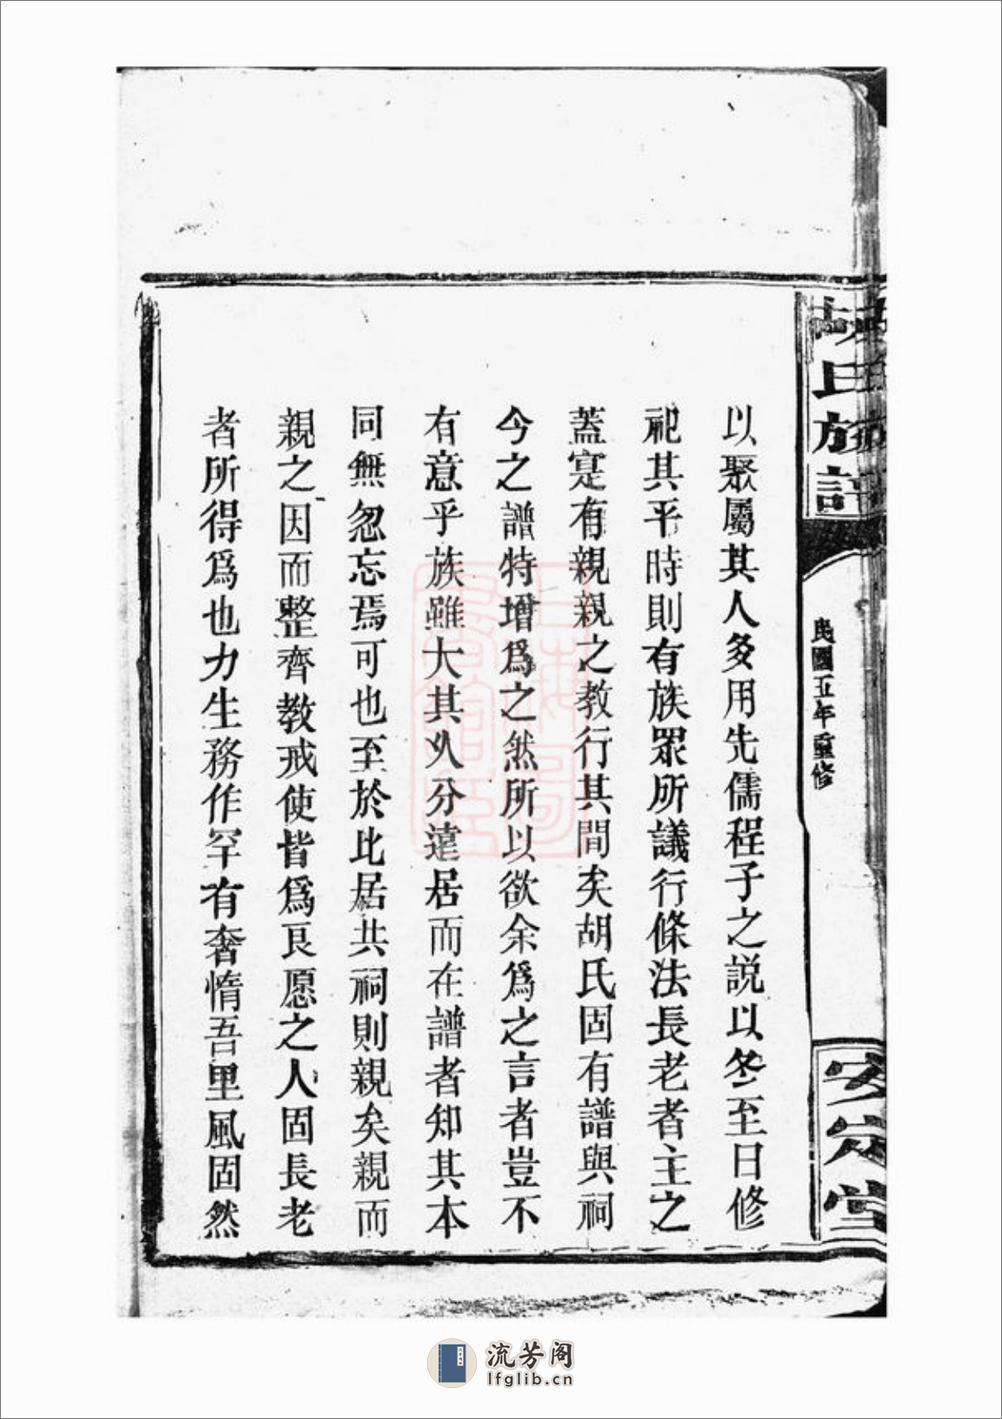 胡氏族譜
民國五年重修
安定堂
以聚屬其人多用先儒程子之説以冬至日修
祀其平時則有族眾所議行條法長老者主之
蓋寔有親親之教行其間矣胡氏固有譜與祠
今之譜特增爲之然所以欲余爲之言者豈不
有意乎族雖大其乆分遠居而在譜者知其本
同無忽忘焉可也至於比居共祠則親矣親而
親之因而整齊教戒使皆爲良愿之人固長老
者所得爲也力生務作罕有奢惰吾里風固然
流芳阁
lfglib.cn